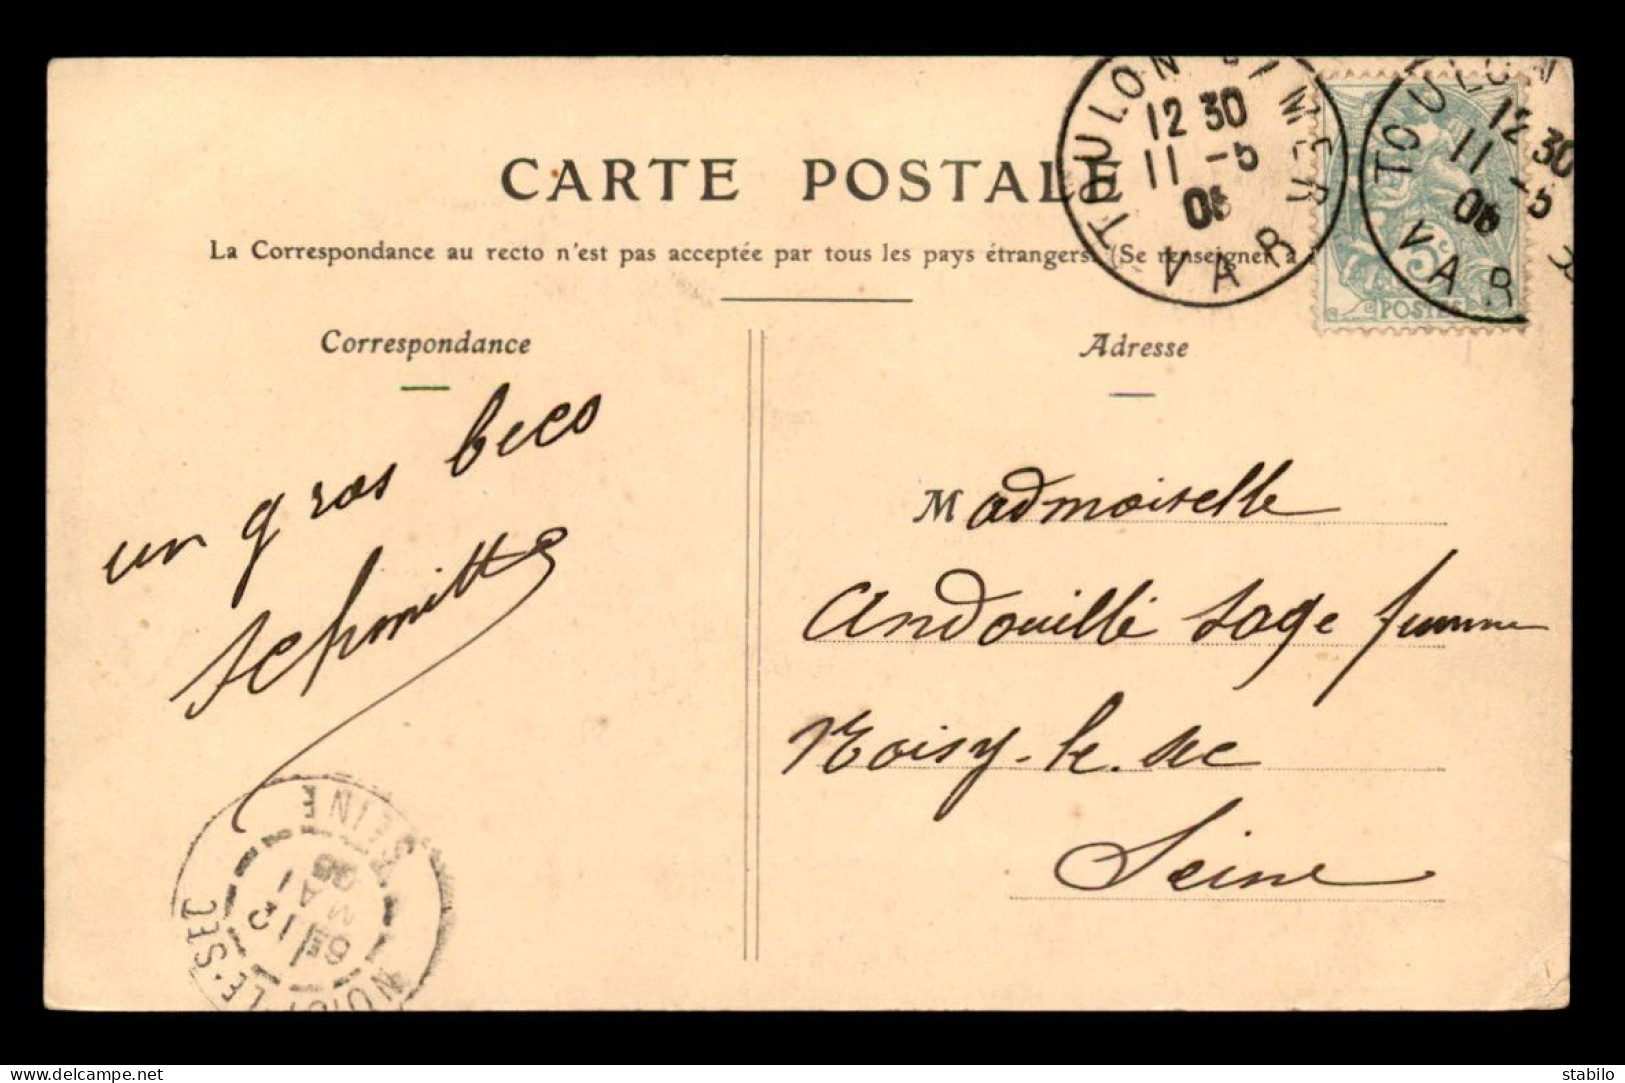 CARTE POSTALE
La Correspondance au recto n'est pas acceptée par tous les pays étrangers. (Se renseigner à
TOULON S/ MER
12 30
11 -5
VAR
TOULON
12 30
11 -5
VAR
5c
POSTES
Correspondance
Adresse
un gros beco
Schmitt
Madmoiselle
Andouillé sage femme
Noisy-le-sec
Seine
SEINE
MAI
NOISY-LE-SEC
delcampe.net
stabilo